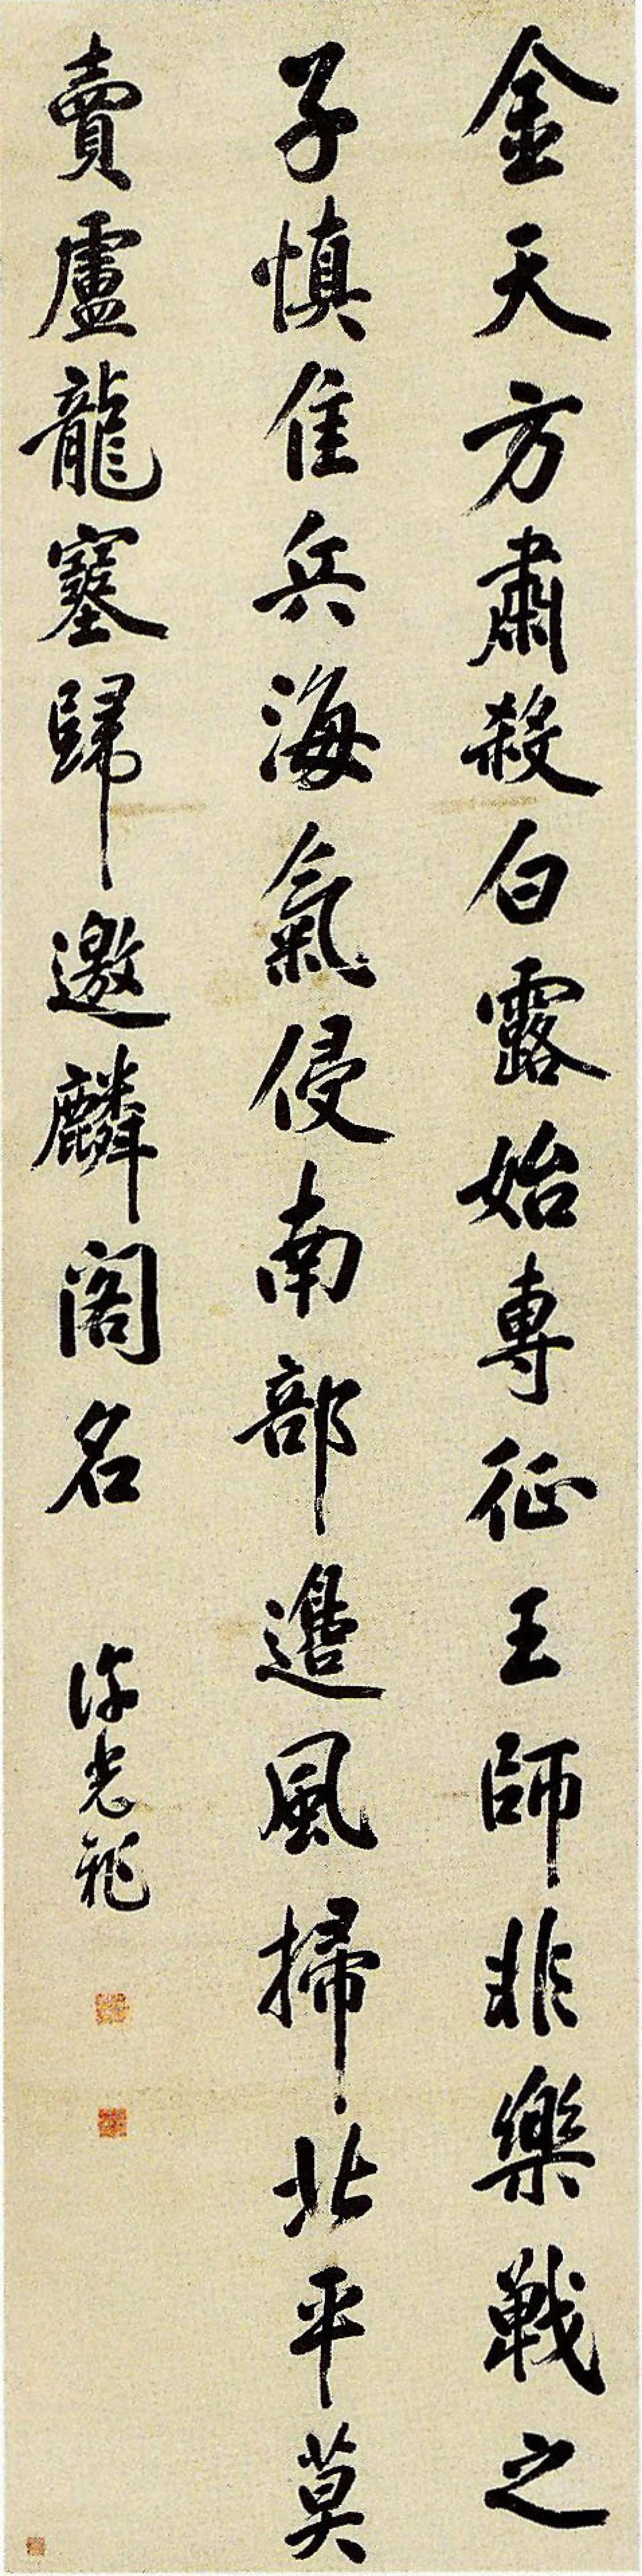 金天方肅殺白露始專征王師非樂戰之
子慎隹兵海氣侵南部邉風掃北平莫
賣盧龍塞歸邀麟閣名
光祚